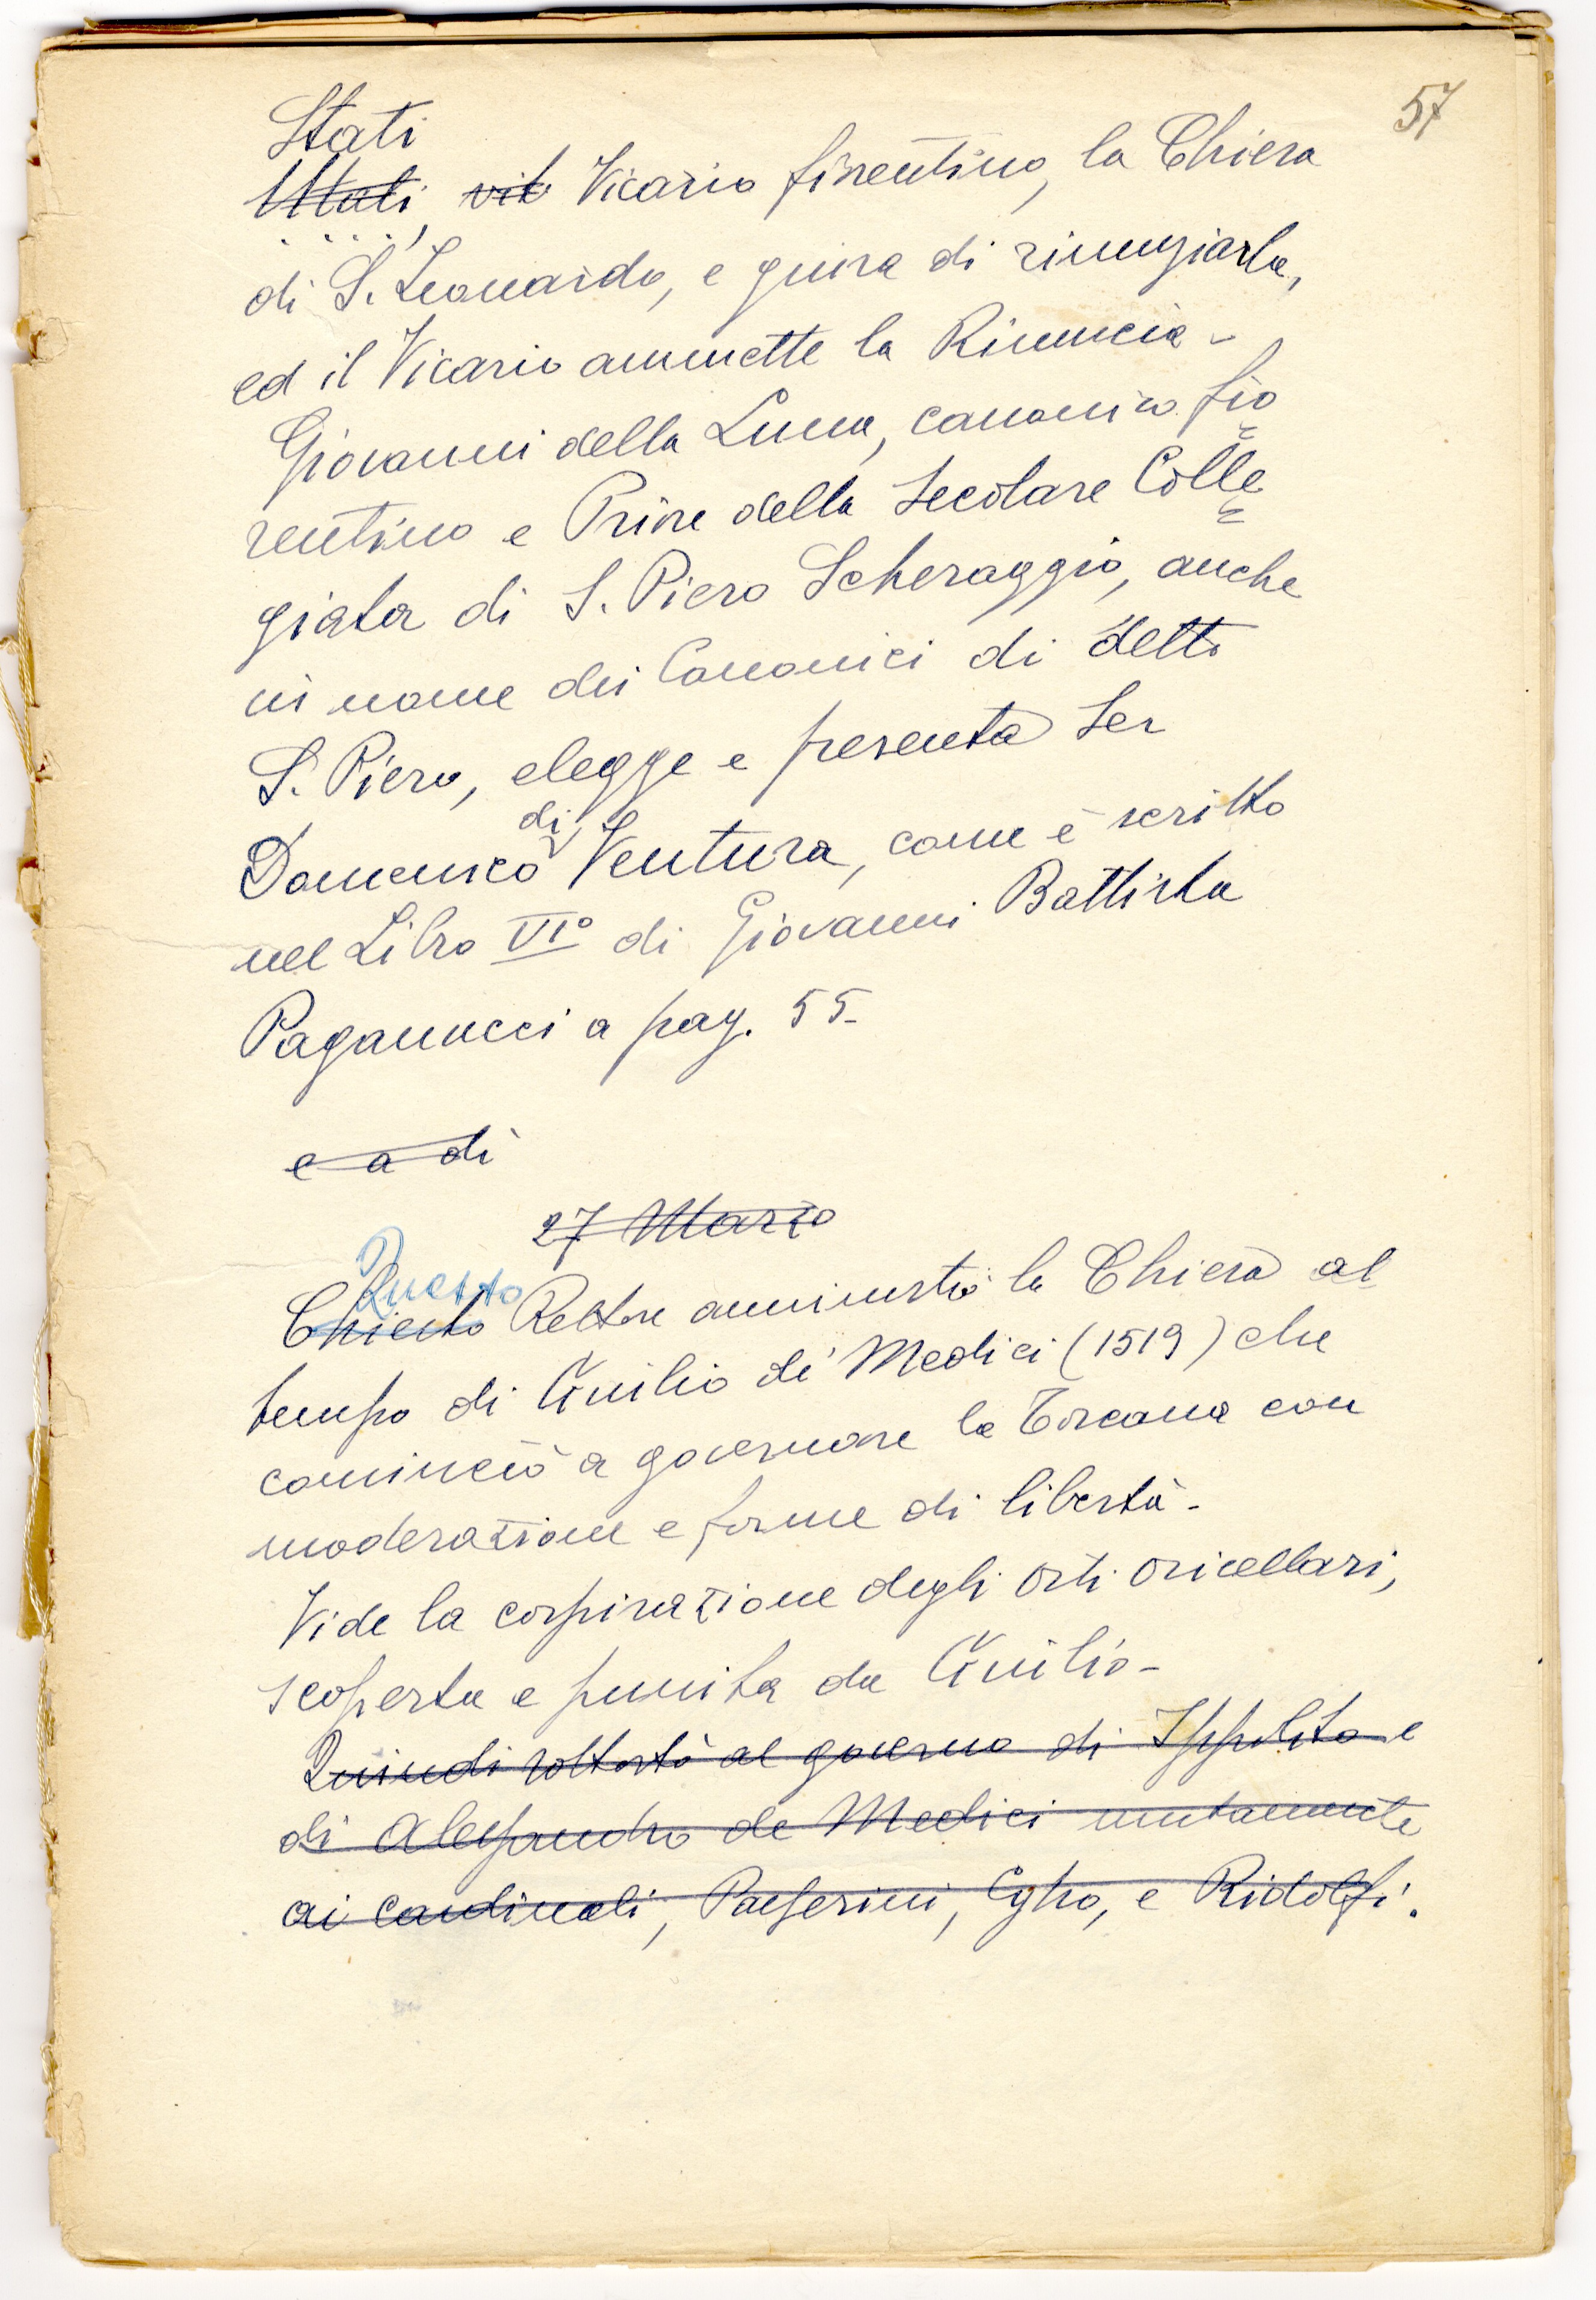 57
Stati
Utati, vit Vicario fiorentino, la Chiesa
di S. Leonardo, e giura di rinunziarla,
ed il Vicario ammette la Rinuncia -
Giovanni della Luna, canonico fio
rentino e Priore della Secolare Colle
giata di S. Piero Scheraggio, anche
in nome dei Canonici di detto
S. Piero, elegge e presenta Ser
Domenico di Ventura, come è scritto
nel Libro VI° di Giovanni Battista
Paganucci a pag. 55-
e a dì
27 Marzo
Questo
Rettore amministrò la Chiesa al
tempo di Giulio de' Medici (1519) che
cominciò a governare la Toscana con
moderazione e forme di libertà -
Vide la cospirazione degli Orti Oricellari,
scoperta e punita da Giulio -
Quindi sottostò al governo di Ippolito e
di Alessandro de Medici unitamente
ai cardinali, Passerini, Cybo, e Ridolfi.